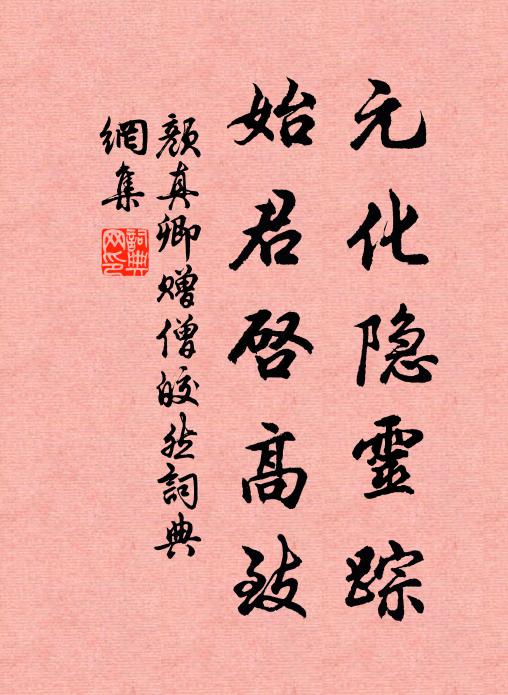 元化隐靈踪
始君启高致
颜真卿赠僧皎然詞典
網集
詞典
网印